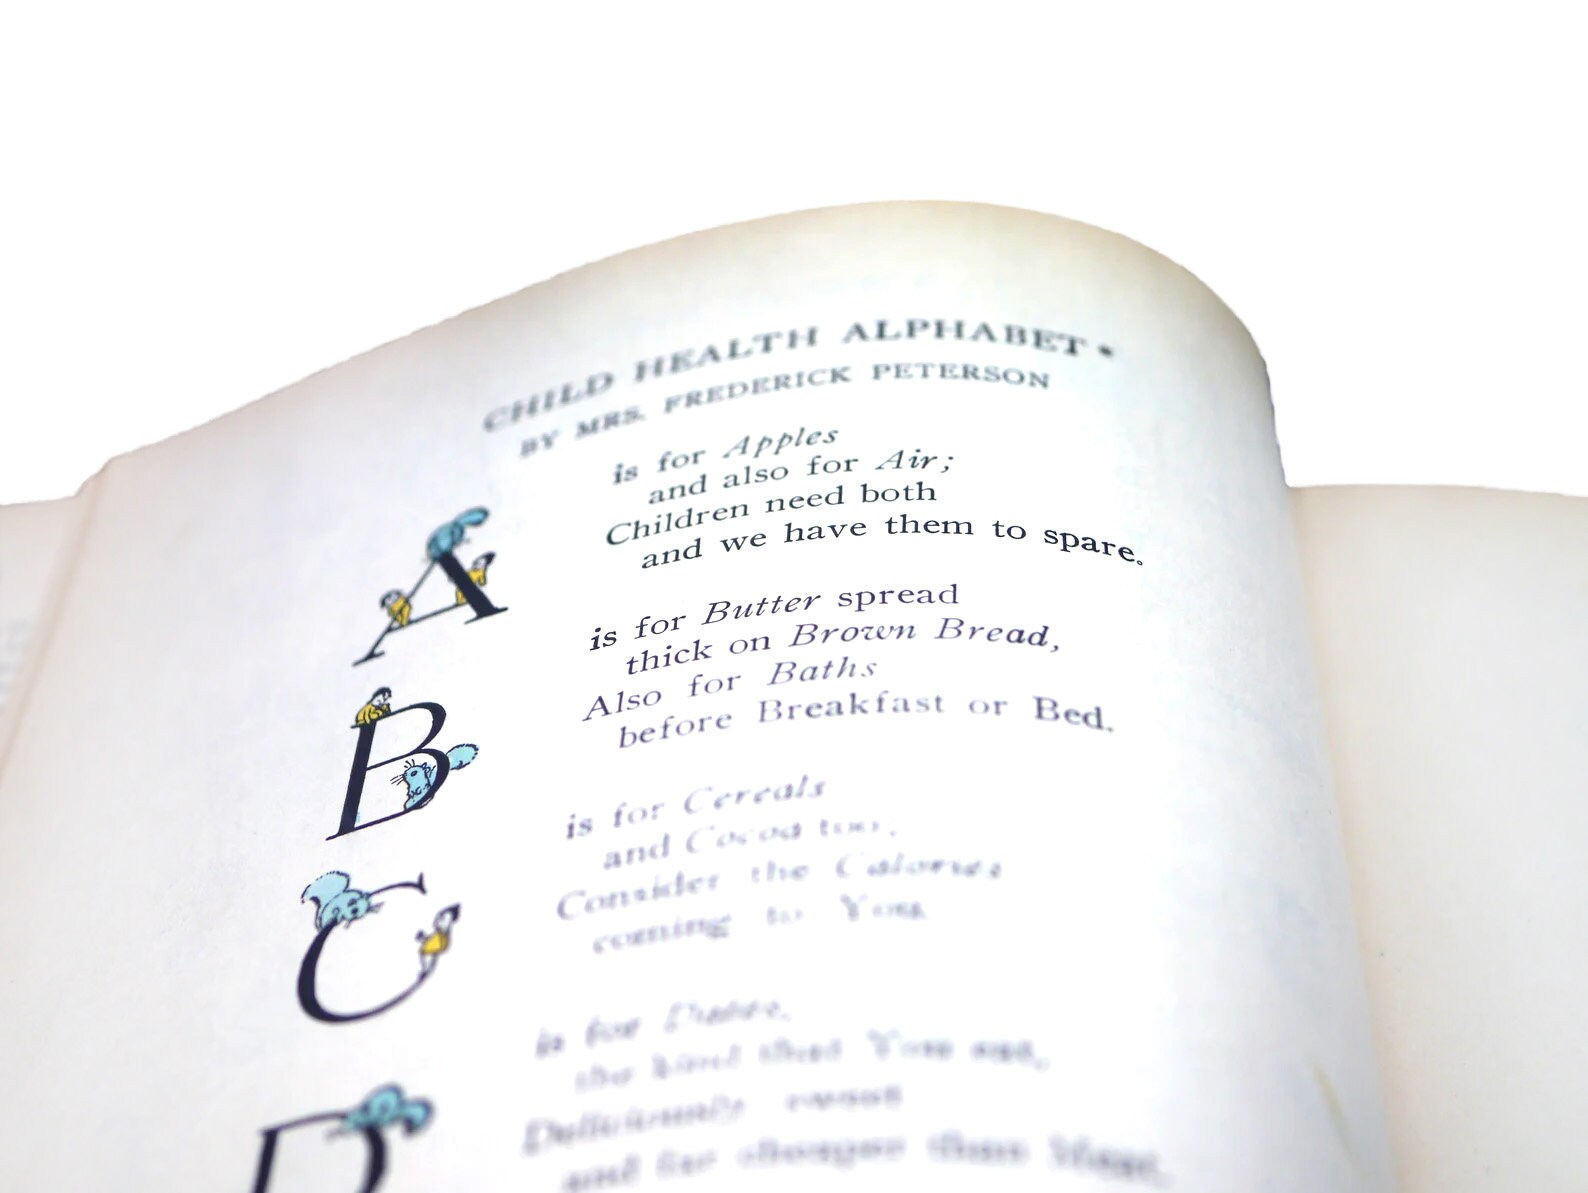 CHILD HEALTH ALPHABET •
BY MRS. FREDERICK PETERSON
A is for Apples
and also for Air;
Children need both
and we have them to spare.
B is for Butter spread
thick on Brown Bread,
Also for Baths
before Breakfast or Bed.
C is for Cereals
and Cocoa too,
Consider the Calories
coming to You.
D is for Dates,
the kind that You eat,
Deliciously sweet
and far cheaper than Meat.